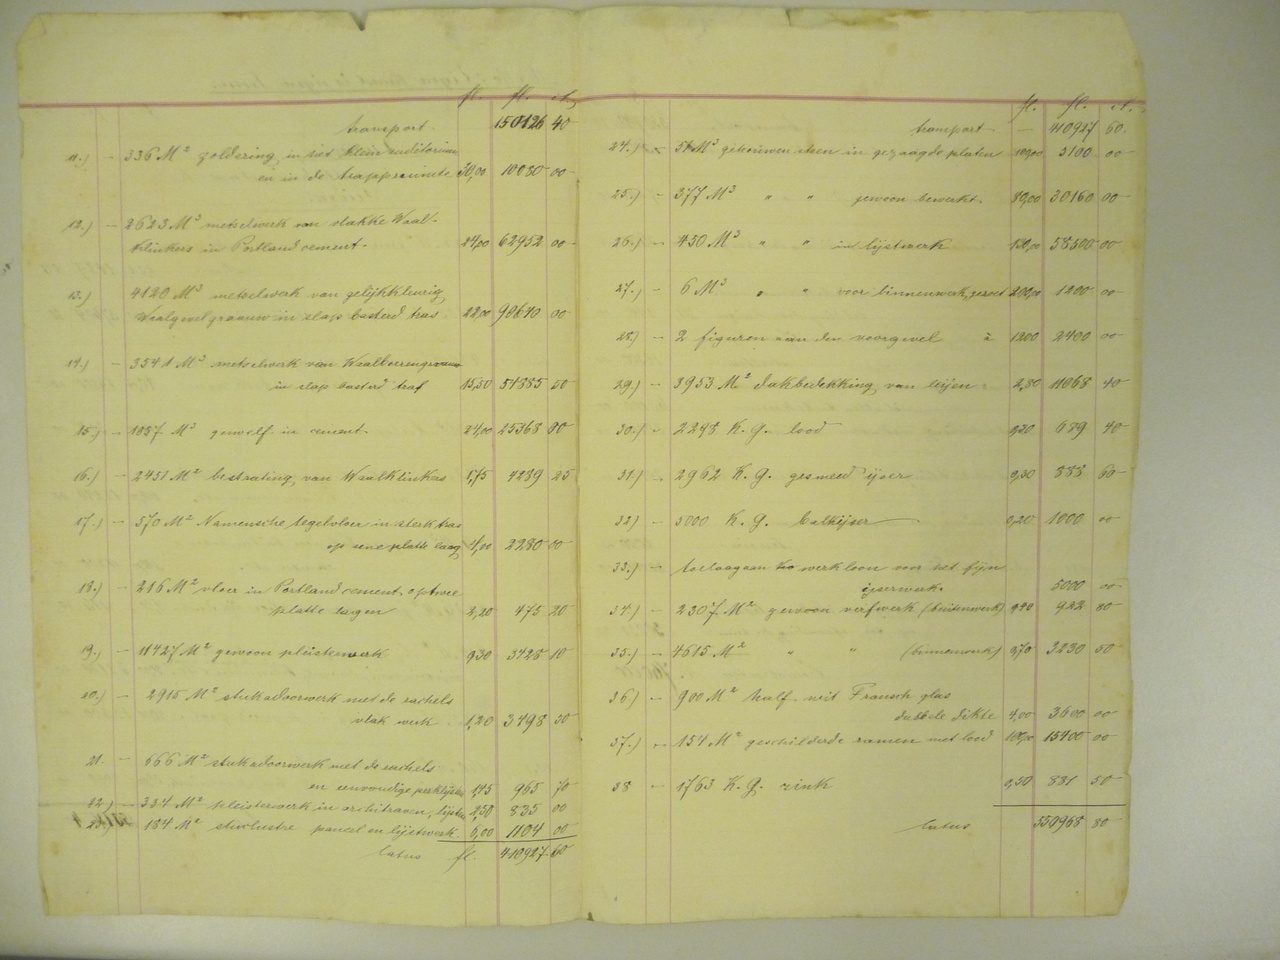 fl. fl. ct.
transport. 150126 40
11.) – 336 M² zoldering in het klein auditorium
en in de trappruimte 30,00 10080 00
12.) – 2623 M³ metselwerk van vlakke Waal-
klinkers in Portland cement. 24,00 62952 00
13.) 4120 M³ metselwerk van gelijkkleurig
Waalgevelgraauw in slap basterd tras 22,00 90640 00
14.) – 3541 M³ metselwerk van
in slap basterd tras 15,50 54885 50
15.) – 1057 M³ gewelf in cement. 24,00 25368 00
16.) – 2451 M² bestrating van Waalklinkers 1,75 4289 25
17.) – 570 M² Namensche tegelvloer in sterk tras
op eene platte laag 4,00 2280 00
18.) – 216 M² vloer in Portland cement op twee
platte lagen 2,20 475 20
19.) – 11427 M² gewoon pleisterwerk 0,30 3428 10
20.) – 2915 M² stukadoorwerk met de rachels
vlak werk 1,20 3498 00
21. – 666 M² stukadoorwerk met de rachels
en eenvoudige perklijsten 1,45 965 70
22.) – 334 M² pleisterwerk in architraven, lijsten 2,50 835 00
23.) 184 M² stuclustre paneel en lijstwerk. 6,00 1104 00
latus fl. 410927 60
fl. fl. ct.
transport – 410927 60.
24.) – 51 M³ gehouwen steen in gezaagde platen 100,00 5100 00
25.) – 377 M³ " " gewoon bewerkt. 80,00 30160 00
26.) – 450 M³ " " in lijstwerk 130,00 58500 00
27.) – 6 M³ " " voor binnenwerk, 200,00 1200 00
28.) – 2 figuren aan den voorgevel à 1200 2400 00
29.) – 3953 M² dakbedekking van leijen 2,80 11068 40
30.) – 2298 K.G. lood 0,30 689 40
31.) – 2962 K.G. gesmeed ijzer 0,30 888 60
32) – 5000 K.G. balkijzer 0,20 1000 00
33.) – toelaag aan werkloon voor het fijn
ijzerwerk. 5000 00
34.) – 2307 M² gewoon verfwerk (buitenwerk) 0,40 922 80
35.) – 4615 M² " " (binnenwerk) 0,70 3230 50
36) – 900 M² half wit Fransch glas
dubbele dikte 4,00 3600 00
37.) – 154 M² geschilderde ramen met lood 100,00 15400 00
38 – 1763 K.G. zink 0,50 881 50
latus 550968 80